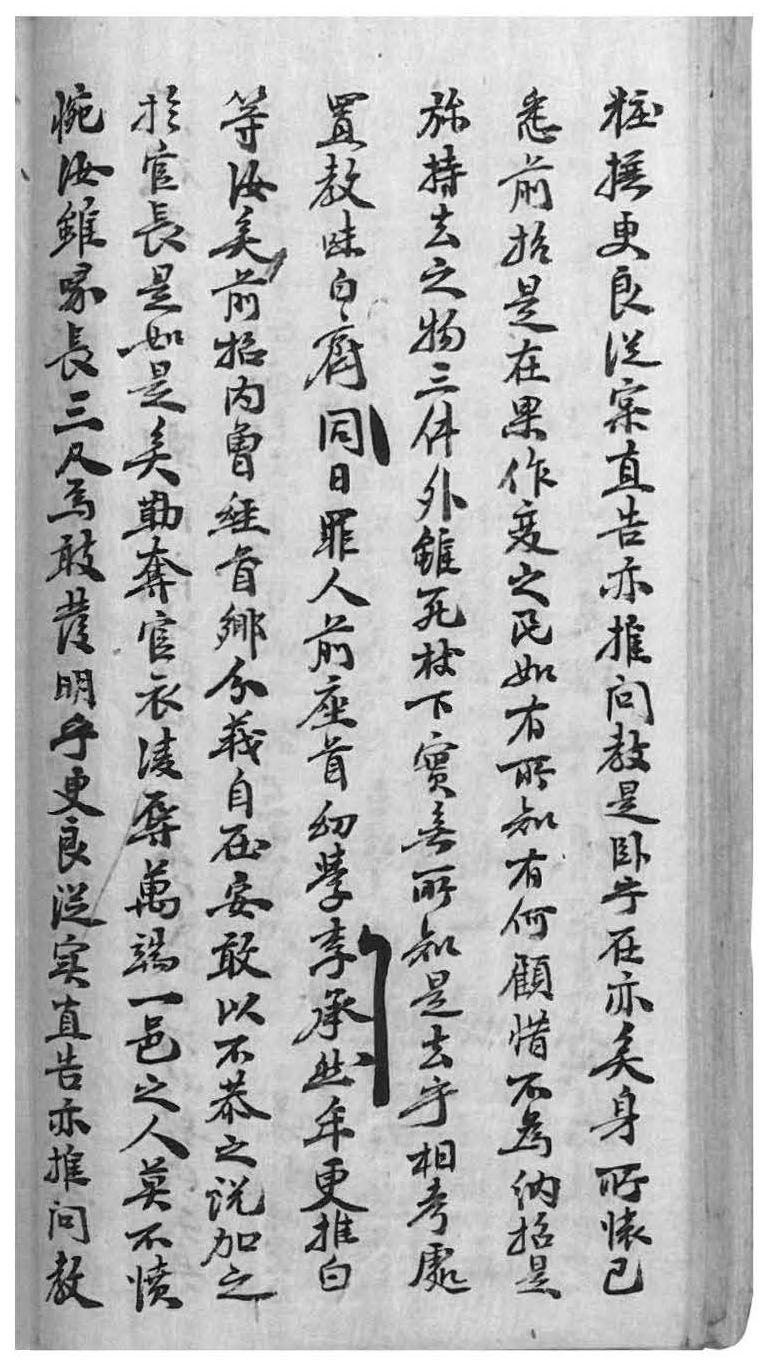 粧撰更良從実直告亦推问教是卧乎在亦矣身所懐已
悉前招是在果作変之民如有所知有何顧惜不為納招是
旀持去之物三件外雖死杖下實無所知是去乎相考處
置教味白齊同日罪人前座首幼學李承然年更推白
等汝矣前招内曾経首鄉分義自在安敢以不恭之說加之
於官長是如是矣勒奪官衣凌辱萬端一邑之人莫不憤
惋汝雖家長三尺焉敢發明乎更良從实直告亦推问教